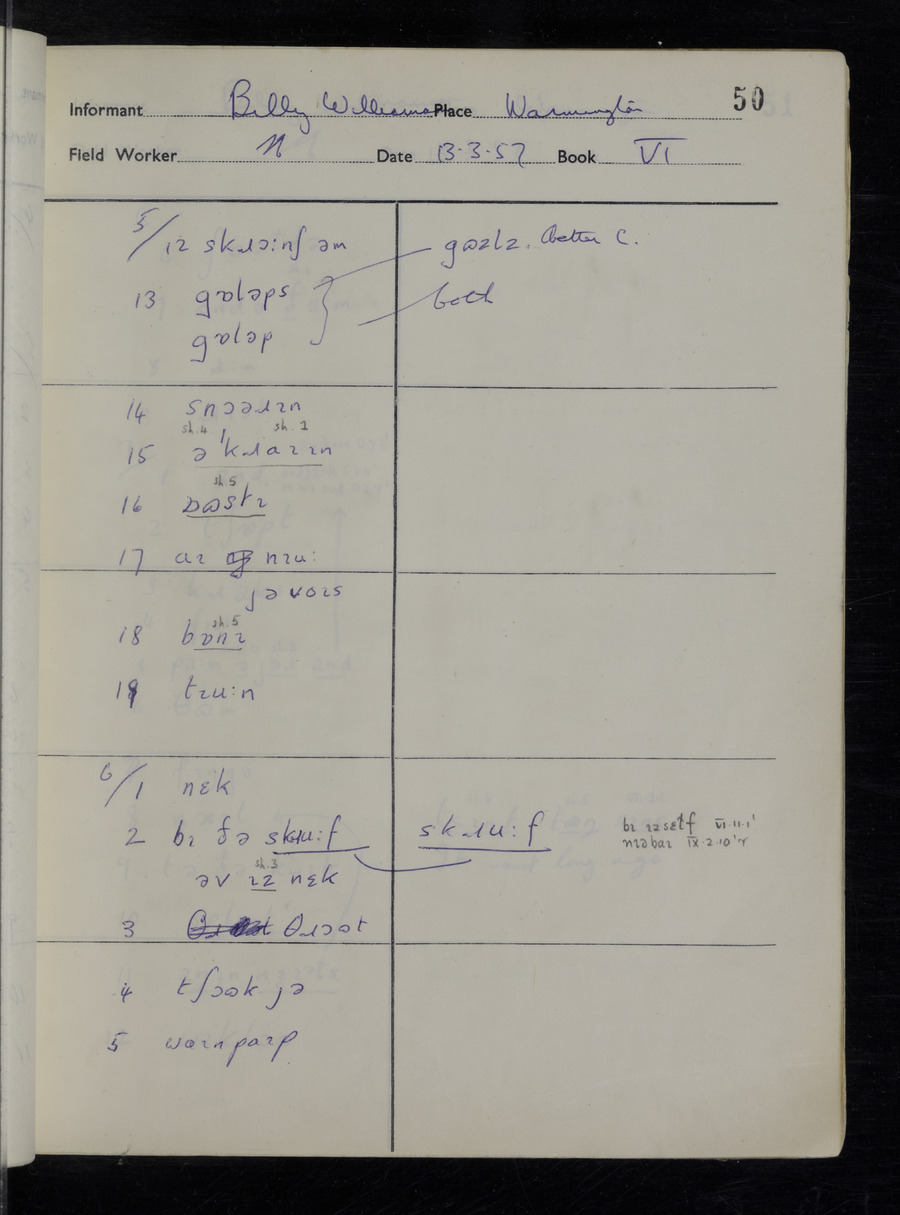 50
Informant Billy Williams Place Warmington
Field Worker N Date 13·3·57 Book VI
5/12 skɹɔːnʃ əm
gɷzlz. better C.
13 gɒləps
both
gɒləp
14 snɔəɹɪn
sh.4 sh.1
15 ə'kɹaɪɪn
sh.5
16 ɷstɪ
17 aɪ nɪuː
jə vɔɪs
sh.5
18 bɒnɪ
19 tɪuːn
6/1 nɛk
2 bɪ ðə skɹuːf
skɹuːf
bɪ ɪzsɛɫf VI·11·1'
nɪəbaɪ IX·2·10'r
sh.3
əv ɪz nɛk
3 θɹɔət
4 tʃɔɷk jə
5 waɪnpaɪp